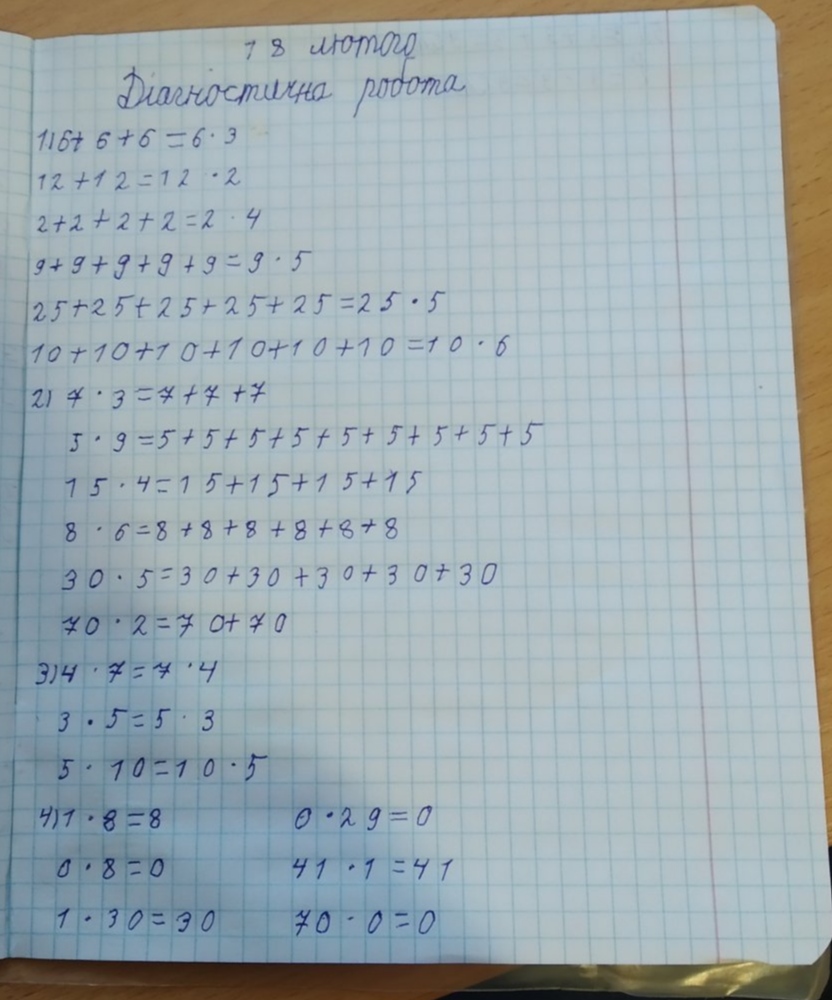 18 лютого
Діагностична робота
1) 6+6+6=6·3
12+12=12·2
2+2+2+2=2·4
9+9+9+9+9=9·5
25+25+25+25+25=25·5
10+10+10+10+10+10=10·6
2) 7·3=7+7+7
5·9=5+5+5+5+5+5+5+5+5
15·4=15+15+15+15
8·6=8+8+8+8+8+8
30·5=30+30+30+30+30
70·2=70+70
3) 4·7=7·4
3·5=5·3
5·10=10·5
4) 1·8=8 0·29=0
0·8=0 41·1=41
1·30=30 70·0=0